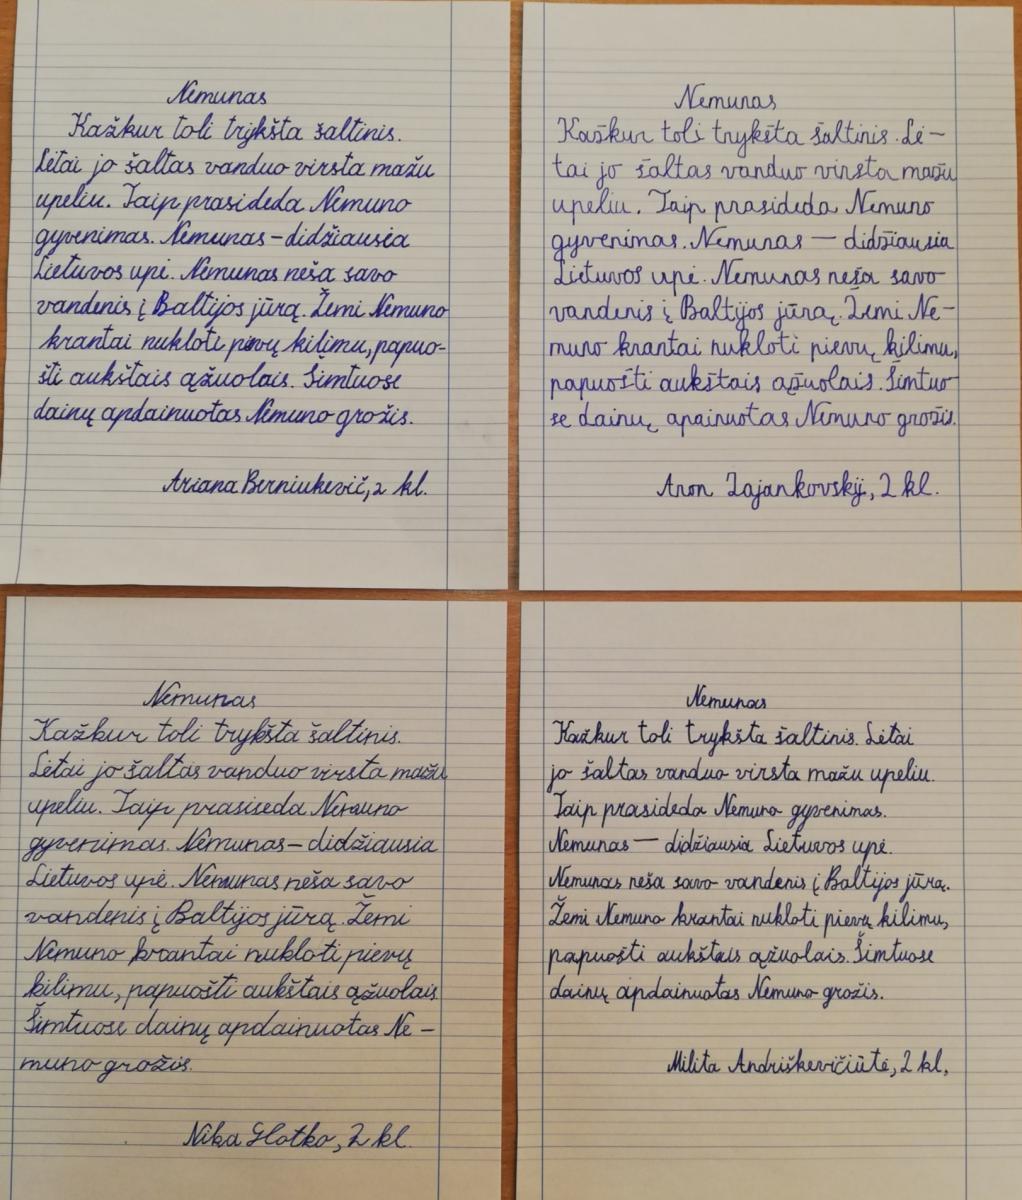 Nemunas
Kažkur toli trykšta šaltinis.
Lėtai jo šaltas vanduo virsta mažu
upeliu. Taip prasideda Nemuno
gyvenimas. Nemunas – didžiausia
Lietuvos upė. Nemunas neša savo
vandenis į Baltijos jūrą. Žemi Nemuno
krantai nukloti pievų kilimu, papuo-
šti aukštais ąžuolais. Šimtuose
dainų apdainuotas Nemuno grožis.
Ariana Berniukevič, 2 kl.
Nemunas
Kažkur toli trykšta šaltinis. Lė-
tai jo šaltas vanduo virsta mažu
upeliu. Taip prasideda Nemuno
gyvenimas. Nemunas — didžiausia
Lietuvos upė. Nemunas neša savo
vandenis į Baltijos jūrą. Žemi Ne-
muno krantai nukloti pievų kilimu,
papuošti aukštais ąžuolais. Šimtuo-
se dainų apainuotas Nemuno grožis.
Aron Zajankovskij, 2 kl.
Nemunas
Kažkur toli trykšta šaltinis.
Lėtai jo šaltas vanduo virsta mažu
upeliu. Taip prasiseda Nemuno
gyvenimas. Nemunas – didžiausia
Lietuvos upė. Nemunas neša savo
vandenis į Baltijos jūrą. Žemi
Nemuno krantai nukloti pievų
kilimu, papuošti aukštais ąžuolais
Šimtuose dainų apdainuotas Ne-
muno grožis.
Nika Glotko, 2 kl.
Nemunas
Kažkur toli trykšta šaltinis. Lėtai
jo šaltas vanduo virsta mažu upeliu.
Taip prasideda Nemuno gyvenimas.
Nemunas — didžiausia Lietuvos upė.
Nemunas neša savo vandenis į Baltijos jūrą.
Žemi Nemuno krantai nukloti pievų kilimu,
papuošti aukštais ąžuolais. Šimtuose
dainų apdainuotas Nemuno grožis.
Milita Andriškevičiūtė, 2 kl,